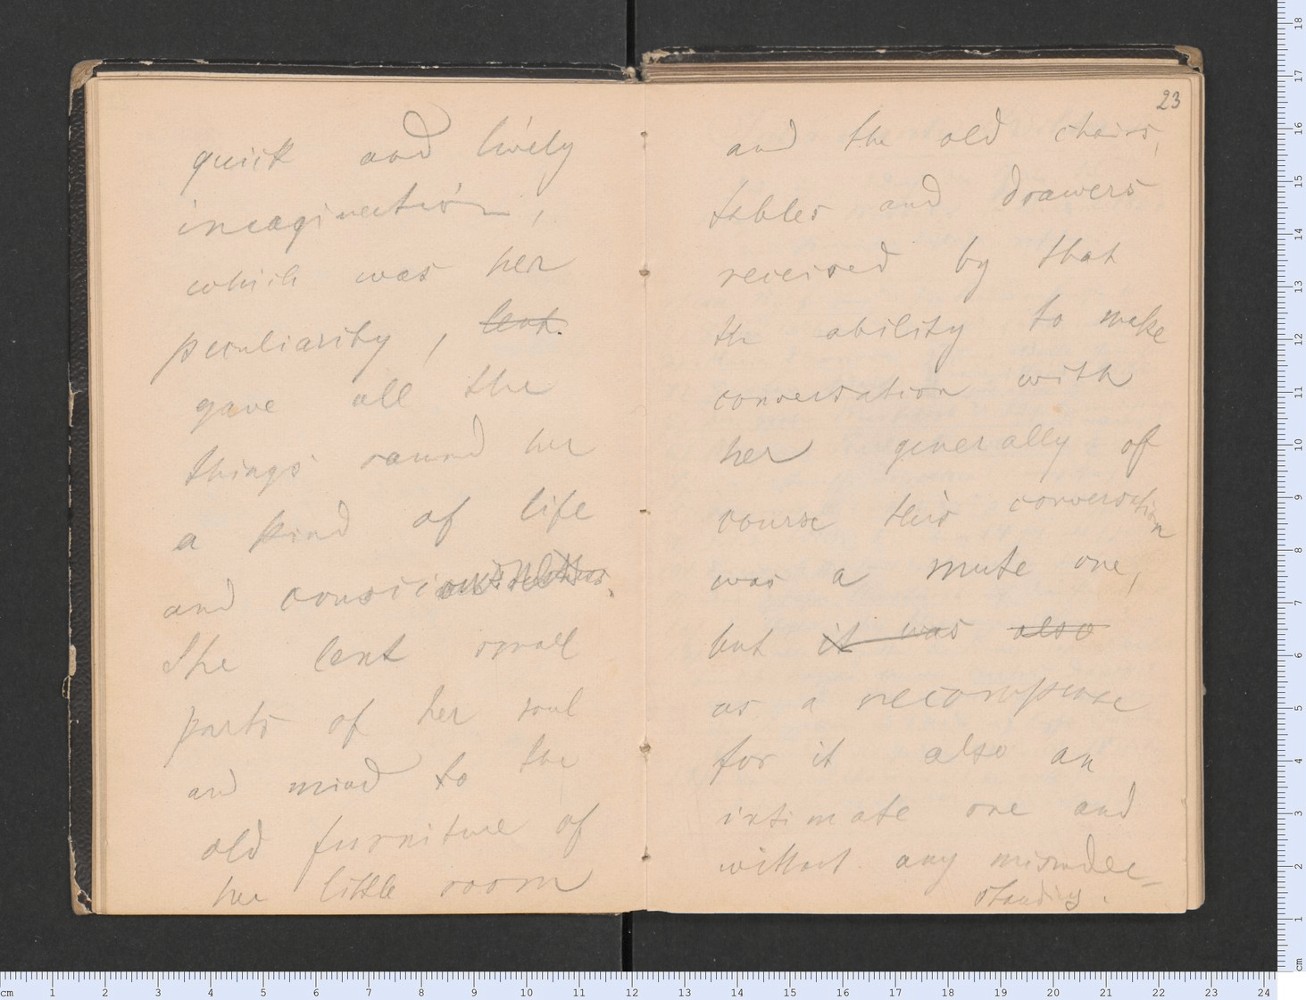 quick and lively
imagination,
which was her
peculiarity, lent.
gave all the
things round her
a kind of life
and consciousness.
She lent small
parts of her soul
and mind to the
old furniture of
her little room
23
and the old chairs,
tables and drawers
received by that
the ability to make
conversation with
her generally of
course this conversation
was a mute one,
but it was also
as a recompense
for it also an
intimate one and
without any misunder-
standing.